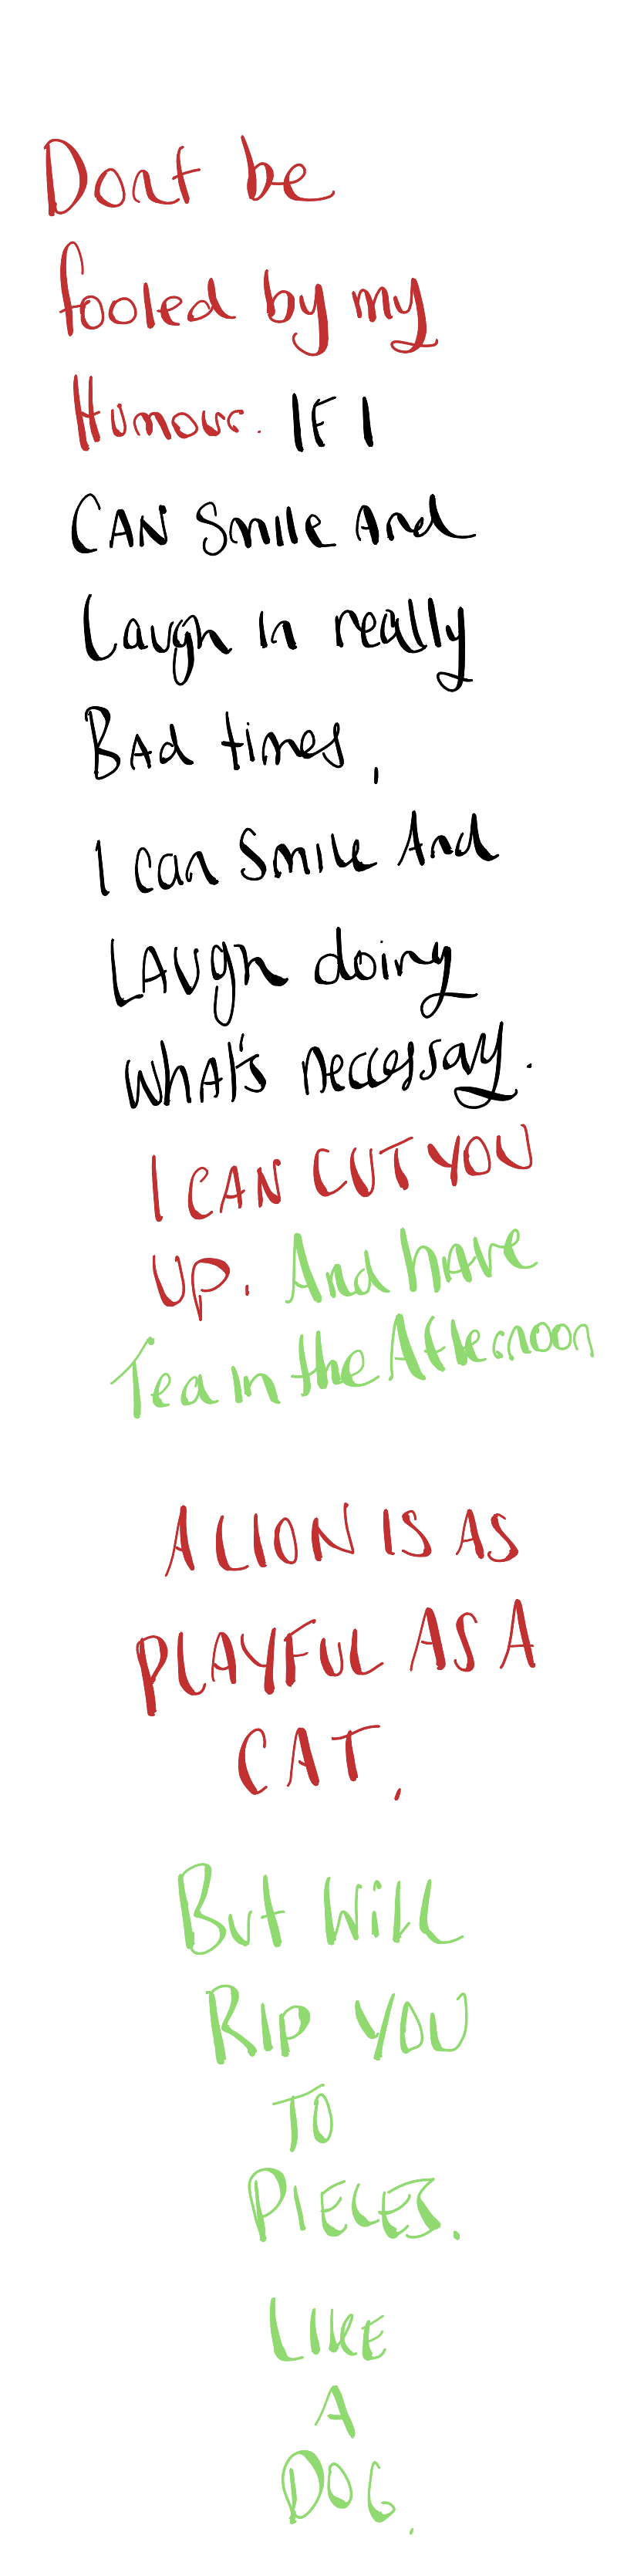 Dont be
fooled by my
Humour. IF I
CAN Smile And
Laugh In really
BAd times,
I can Smile And
LAUgh doing
whAt's neccessay.
I CAN CUT YOU
UP. And hAve
Tea In the Afternoon
A LION IS AS
PLAYFUL AS A
CAT.
But Will
RIP YOU
TO
PIECES.
LIKE
A
DOG.